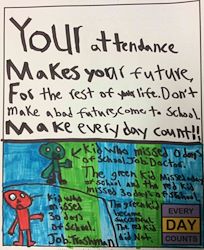 Your attendance
Makes your future,
For the rest of your life. Don't
make a bad future, come to School.
Make every day count!!
Kid who missed 0 days
of school. Job: Doctor.
The green kid missed 0 days
of school and the red kid
missed 30 days of school
The green kid
became
successful
The red kid
did not.
Kid who
missed
30 days
of school.
Job: Trashman
EVERY
DAY
COUNTS